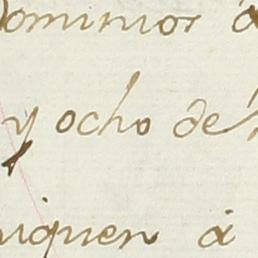 Dominios á
y ocho de
iquen á